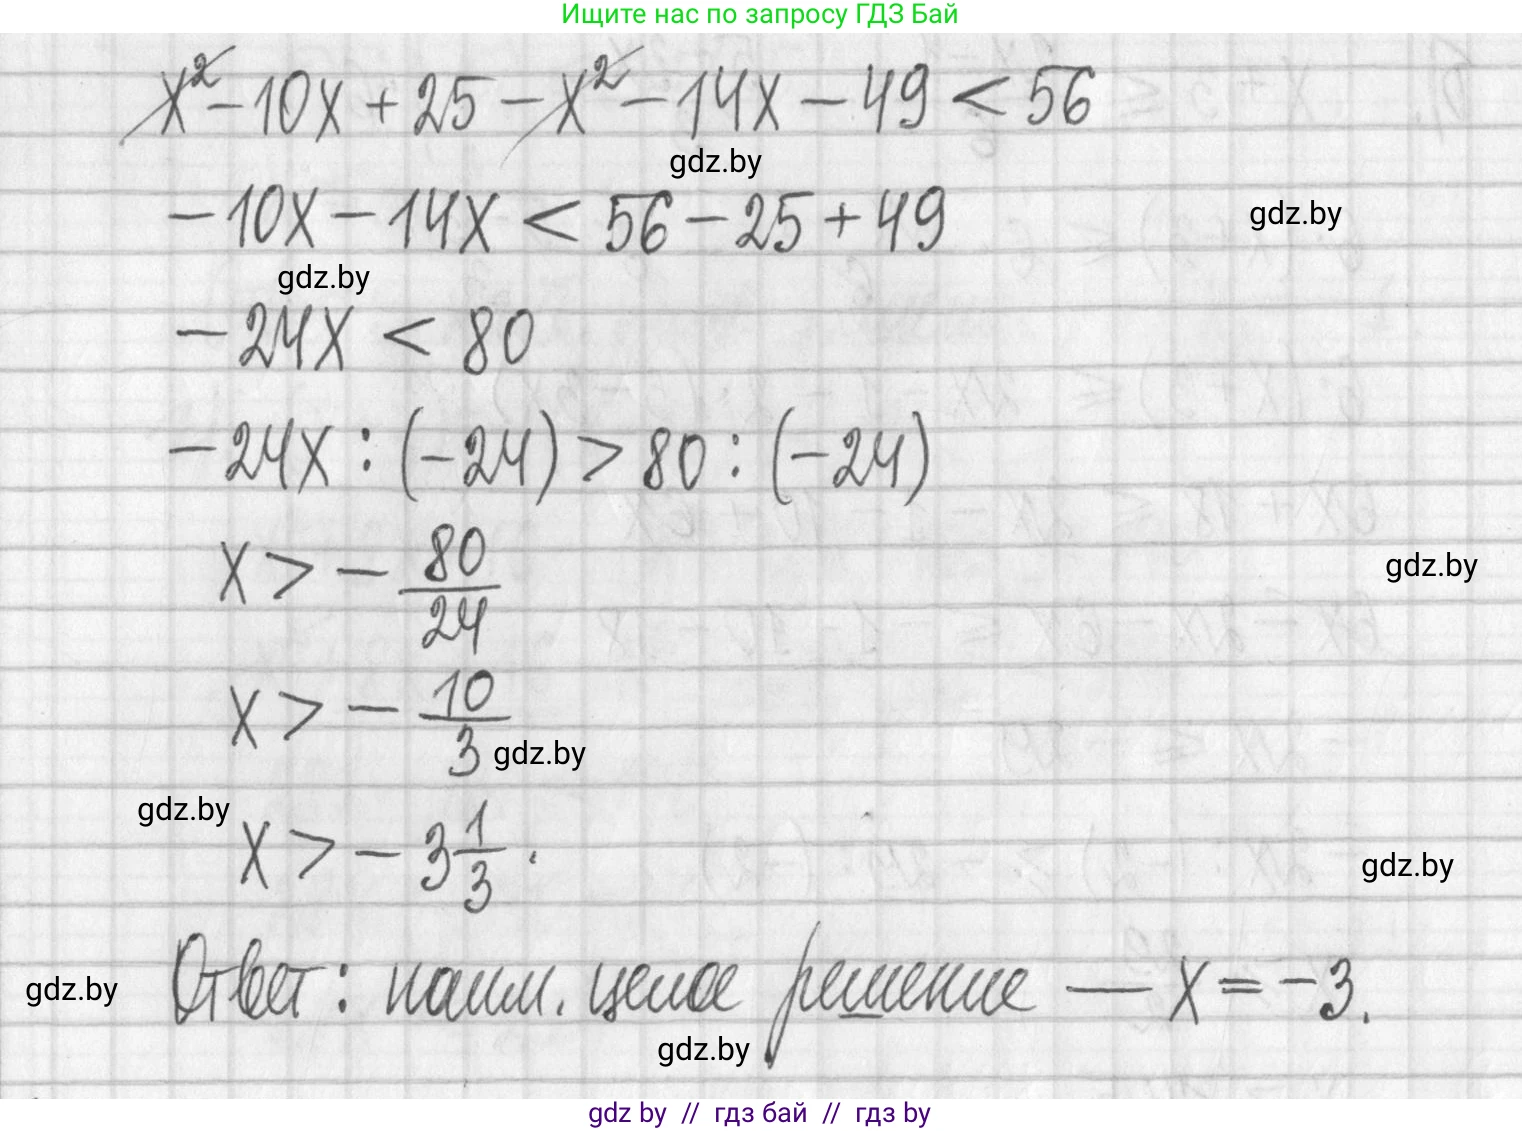 Ищите нас по запросу ГДЗ Бай
x² - 10x + 25 - x² - 14x - 49 < 56
gdz.by
- 10x - 14x < 56 - 25 + 49
gdz.by
gdz.by
- 24x < 80
- 24x : (-24) > 80 : (-24)
x > - 80/24
gdz.by
x > - 10/3
gdz.by
gdz.by
x > - 3 1/3 .
gdz.by
Ответ: наим. целое решение — x = -3.
gdz.by
gdz.by
gdz by // гдз бай // гдз by